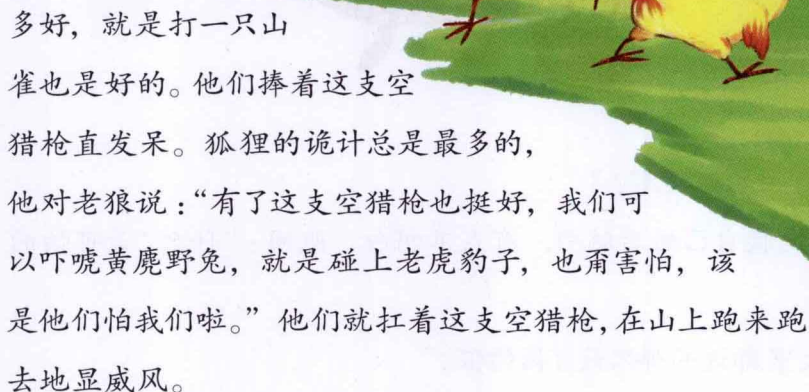 多好，就是打一只山
雀也是好的。他们捧着这支空
猎枪直发呆。狐狸的诡计总是最多的，
他对老狼说：“有了这支空猎枪也挺好，我们可
以吓唬黄麂野兔，就是碰上老虎豹子，也甭害怕，该
是他们怕我们啦。”他们就扛着这支空猎枪，在山上跑来跑
去地显威风。